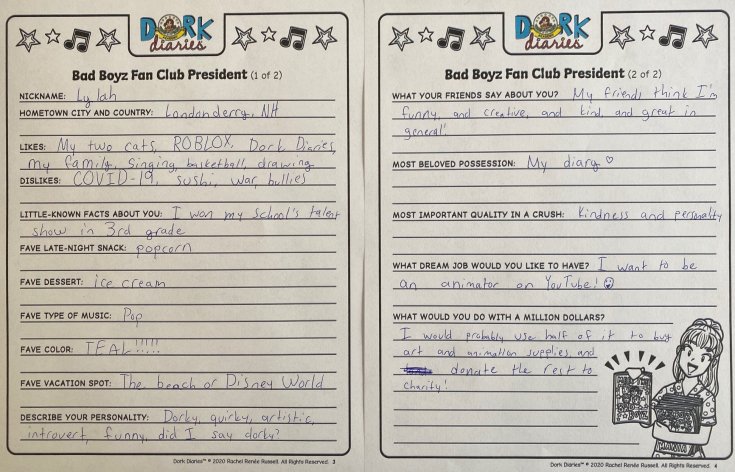 DORK
diaries
Bad Boyz Fan Club President (1 of 2)
NICKNAME: Lylah
HOMETOWN CITY AND COUNTRY: Londonderry, NH
LIKES: My two cats, ROBLOX, Dork Diaries,
my family, singing, basketball, drawing
DISLIKES: COVID-19, sushi, war, bullies
LITTLE-KNOWN FACTS ABOUT YOU: I won my school's talent
show in 3rd grade
FAVE LATE-NIGHT SNACK: popcorn
FAVE DESSERT: ice cream
FAVE TYPE OF MUSIC: Pop
FAVE COLOR: TEAL!!!!!
FAVE VACATION SPOT: The beach or Disney World
DESCRIBE YOUR PERSONALITY: Dorky, quirky, artistic,
introvert, funny, did I say dorky?
Dork Diaries™ © 2020 Rachel Renée Russell. All Rights Reserved. 3
DORK
diaries
Bad Boyz Fan Club President (2 of 2)
WHAT YOUR FRIENDS SAY ABOUT YOU? My friends think I'm
funny, and creative, and kind, and great in
general!
MOST BELOVED POSSESSION: My diary ♡
MOST IMPORTANT QUALITY IN A CRUSH: Kindness and personality
WHAT DREAM JOB WOULD YOU LIKE TO HAVE? I want to be
an animator on YouTube! ☺
WHAT WOULD YOU DO WITH A MILLION DOLLARS?
I would probably use half of it to buy
art and animation supplies, and
donate the rest to
charity!
Dork Diaries™ © 2020 Rachel Renée Russell. All Rights Reserved. 4